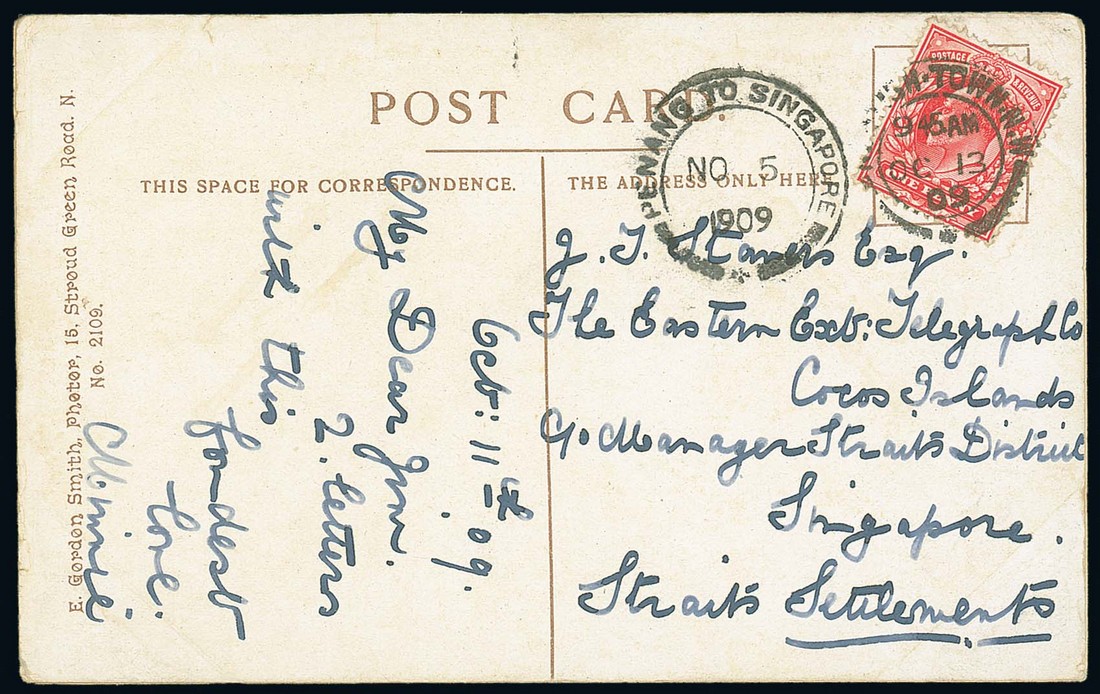 POST CARD.
THIS SPACE FOR CORRESPONDENCE.
THE ADDRESS ONLY HERE
E. Gordon Smith, Photor, 15, Stroud Green Road. N.
No. 2109.
Octb: 11th 09.
My Dear Jim.
2. letters
with this
fondest
love.
Minnie
J. J. Stavers Esq.
The Eastern Ext: Telegraph Co
Cocos Islands
c/o Manager Straits District
Singapore.
Straits Settlements
PENANG TO SINGAPORE
NO 5
1909
POSTAGE
REVENUE
ONE PENNY
TOWN. N.W
9 45 AM
OC 13
09